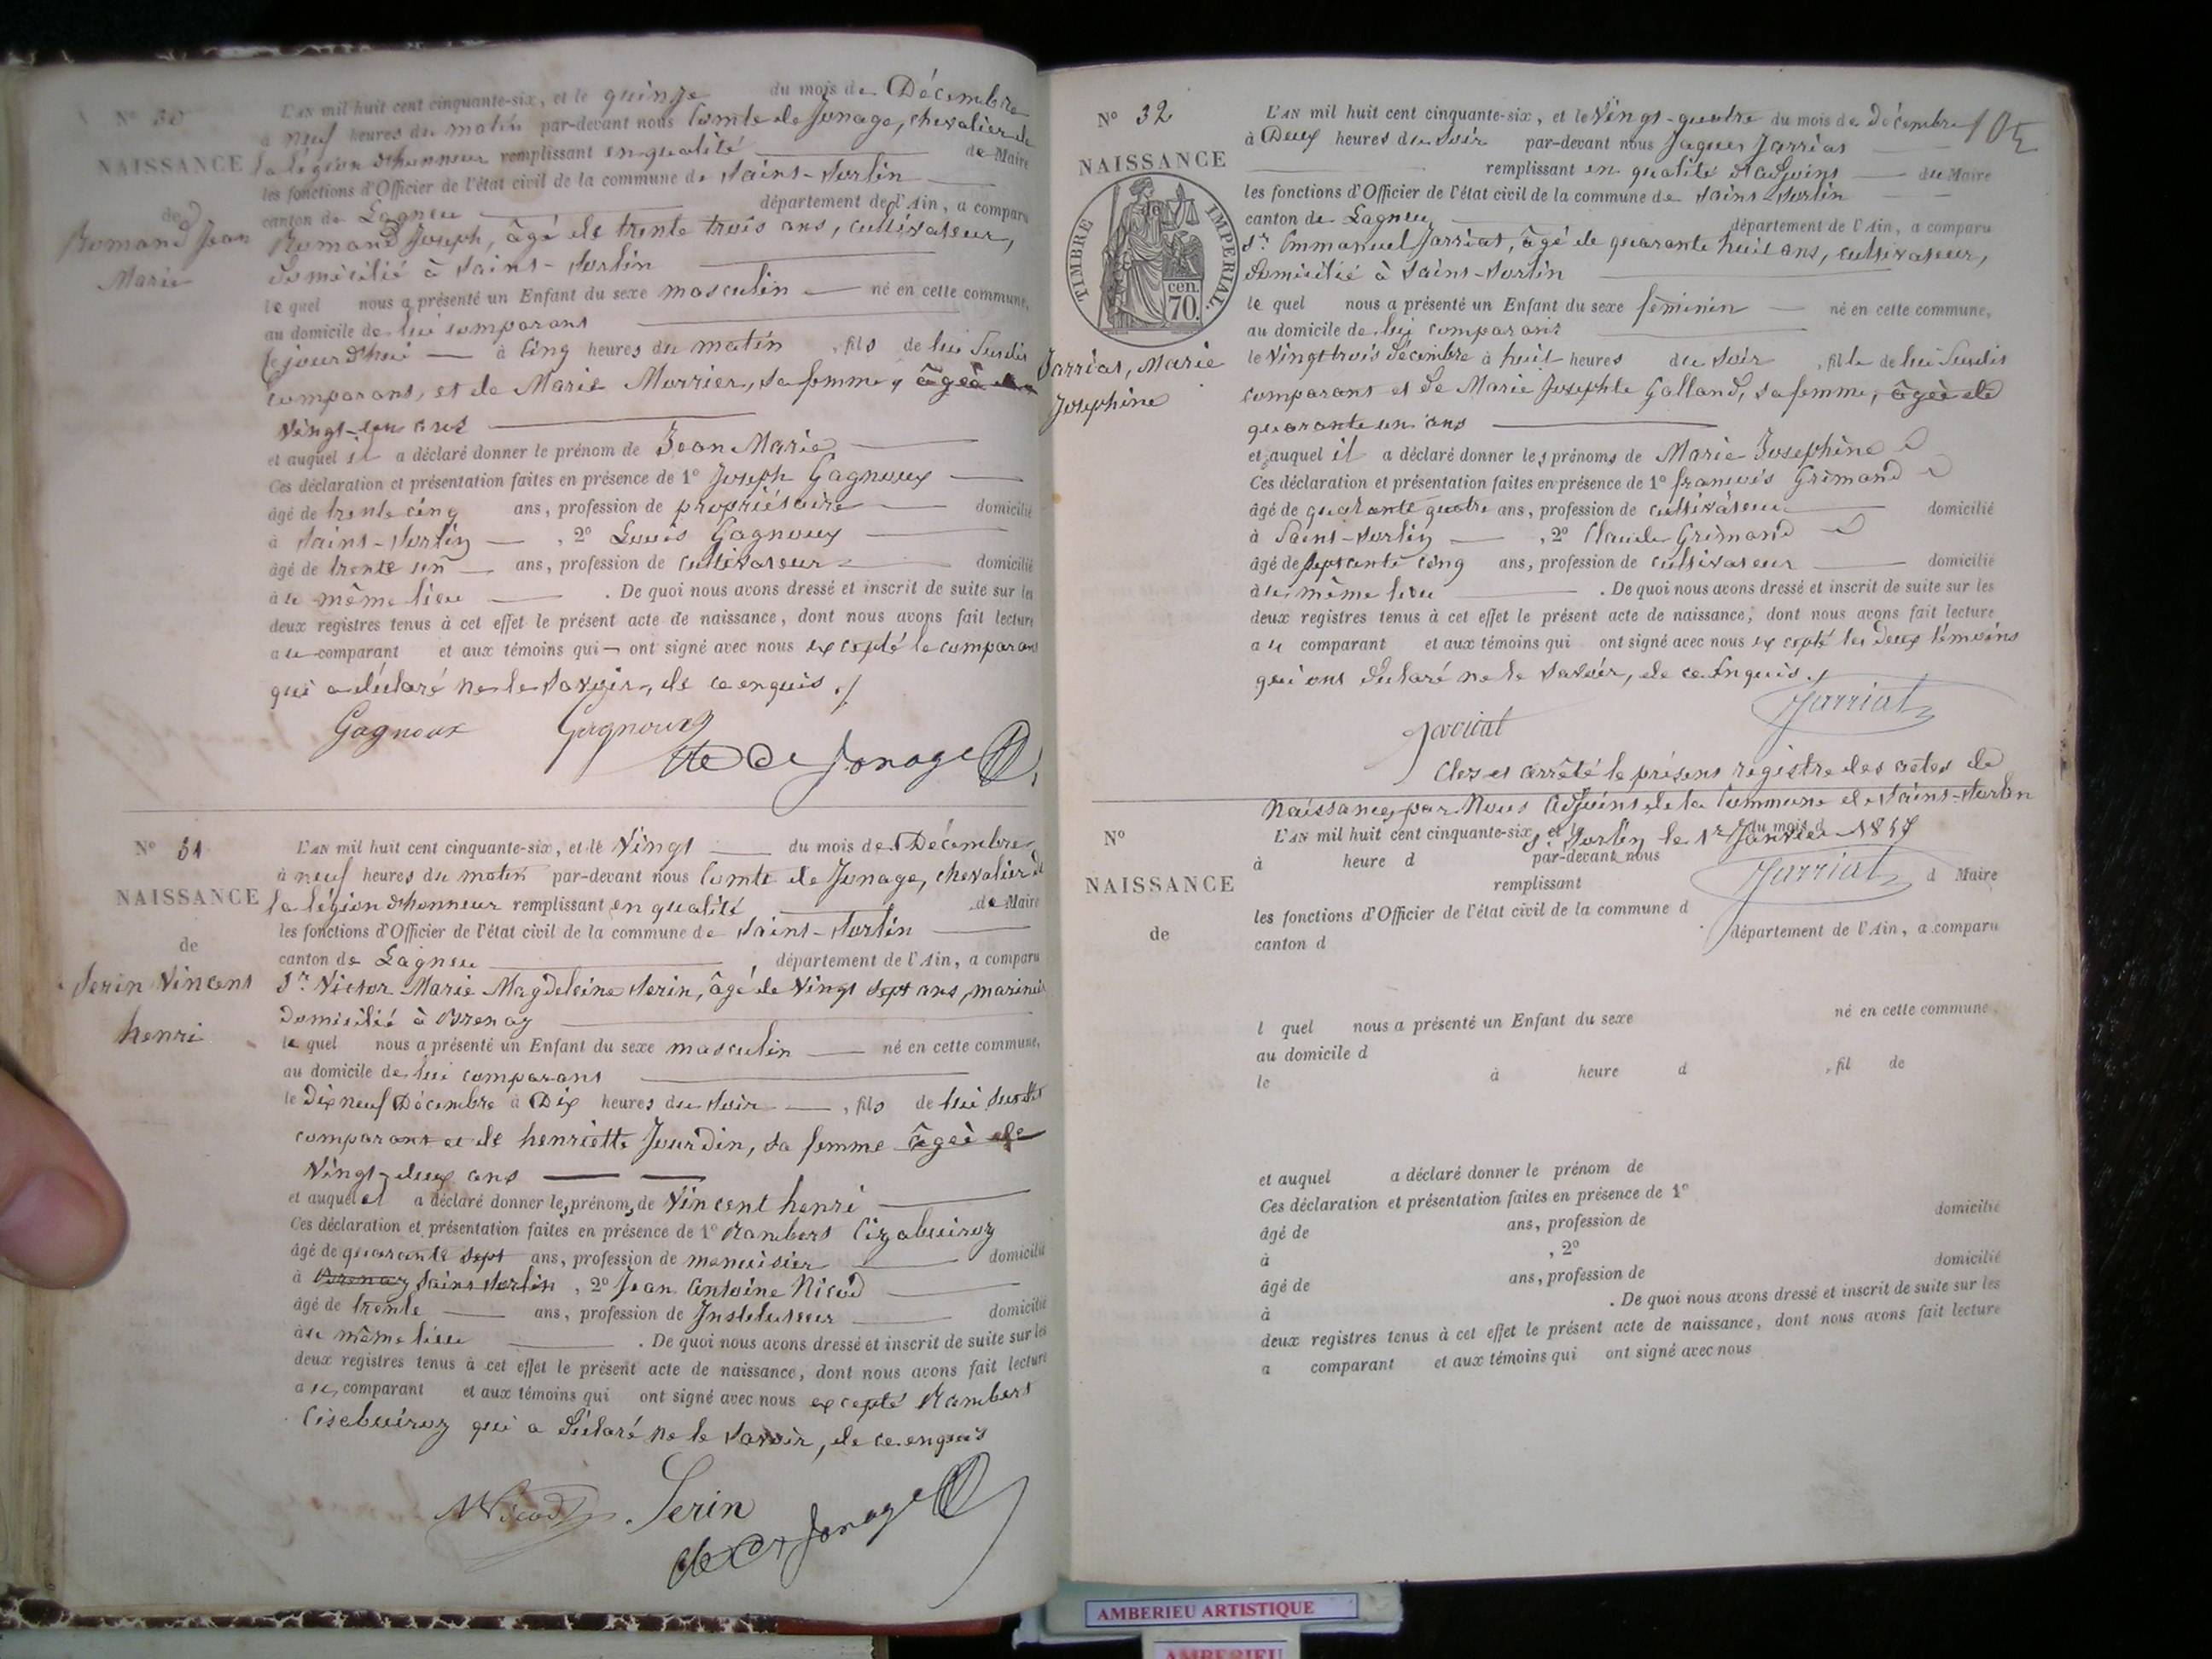 N° 30
NAISSANCE
de
Romand Jean
Marie
L'AN mil huit cent cinquante-six, et le quinze du mois de Décembre
à neuf heures du matin par-devant nous Comte de Jonage, chevalier de
la légion d'honneur remplissant en qualité de Maire
les fonctions d'Officier de l'état civil de la commune de Saint-Sorlin
canton de Lagneu département de l'Ain, a comparu
Romand Joseph, âgé de trente trois ans, cultivateur,
domicilié à Saint-Sorlin
le quel nous a présenté un Enfant du sexe masculin né en cette commune,
au domicile de lui comparant
ce jourd'hui à cinq heures du matin, fils de lui Susdit
comparant, et de Marie Morrier, sa femme, âgée de
vingt-un ans
et auquel il a déclaré donner le prénom de Jean Marie
Ces déclaration et présentation faites en présence de 1° Joseph Gagnoux
âgé de trente cinq ans, profession de propriétaire domicilié
à Saint-Sorlin, 2° Louis Gagnoux
âgé de trente un ans, profession de cultivateur domicilié
à le même lieu. De quoi nous avons dressé et inscrit de suite sur les
deux registres tenus à cet effet le présent acte de naissance, dont nous avons fait lecture
a le comparant et aux témoins qui ont signé avec nous excepté le comparant
qui a déclaré ne le savoir, de ce enquis ./
Gagnoux Gagnoux
Cte De Jonage
N° 31
NAISSANCE
de
Serin Vincent
henri
L'AN mil huit cent cinquante-six, et le Vingt du mois de Décembre
à neuf heures du matin par-devant nous Comte de Jonage, chevalier de
la légion d'honneur remplissant en qualité de Maire
les fonctions d'Officier de l'état civil de la commune de Saint-Sorlin
canton de Lagneu département de l'Ain, a comparu
Sr. Victor Marie Magdeleine Serin, âgé de Vingt sept ans, marinier
domicilié à Brenaz
le quel nous a présenté un Enfant du sexe masculin né en cette commune,
au domicile de lui comparant
le dix neuf Décembre à Dix heures du soir, fils de lui susdit
comparant et de henriette Jourdin, sa femme âgée de
Vingt-deux ans
et auquel il a déclaré donner les prénoms de Vincent henri
Ces déclaration et présentation faites en présence de 1° Rambert Cizabuiroz
âgé de quarante sept ans, profession de menuisier domicilié
à Brenaz Saint Sorlin, 2° Jean Antoine Nicod
âgé de trente ans, profession de Instituteur domicilié
à le même lieu. De quoi nous avons dressé et inscrit de suite sur les
deux registres tenus à cet effet le présent acte de naissance, dont nous avons fait lecture
a le comparant et aux témoins qui ont signé avec nous excepté Rambert
Cisebuiroz qui a déclaré ne le savoir, de ce enquis
Nicod Serin
Cte De Jonage
105
N° 32
NAISSANCE
de
TIMBRE IMPERIAL.
cen.
70.
Jarriat, Marie
Josephine
L'AN mil huit cent cinquante-six, et le Vingt-quatre du mois de Décembre
à Deux heures du soir par-devant nous Jaques Jarriat
remplissant en qualité d'adjoint du Maire
les fonctions d'Officier de l'état civil de la commune de Saint Sorlin
canton de Lagneu département de l'Ain, a comparu
Sr. Emmanuel Jarriat, âgé de quarante huit ans, cultivateur,
domicilié à Saint-Sorlin
le quel nous a présenté un Enfant du sexe féminin né en cette commune,
au domicile de lui comparant
le Vingt trois Décembre à huit heures du soir, fille de lui Susdit
comparant et de Marie Josephte Galland, sa femme, âgée de
quarante un ans
et auquel il a déclaré donner les prénoms de Marie Josephine
Ces déclaration et présentation faites en présence de 1° francois Grimand
âgé de quarante quatre ans, profession de cultivateur domicilié
à Saint-Sorlin, 2° Claude Grimand
âgé de septante cinq ans, profession de cultivateur domicilié
à le même lieu. De quoi nous avons dressé et inscrit de suite sur les
deux registres tenus à cet effet le présent acte de naissance, dont nous avons fait lecture
a le comparant et aux témoins qui ont signé avec nous excepté les deux témoins
qui ont déclaré ne le savoir, de ce Enquis ./
Jarriat Jarriat
Clos et arrêté le présent registre des actes de
Naissance, par Nous adjoint de la Commune de Saint-Sorlin
St. Sorlin le 1er Janvier 1857
Jarriat
N°
NAISSANCE
de
L'AN mil huit cent cinquante-six, et le du mois d
à heure d par-devant nous
remplissant d Maire
les fonctions d'Officier de l'état civil de la commune d
canton d département de l'Ain, a comparu
l quel nous a présenté un Enfant du sexe né en cette commune,
au domicile d
le à heure d, fil de
et auquel a déclaré donner le prénom de
Ces déclaration et présentation faites en présence de 1°
âgé de ans, profession de domicilié
à , 2°
âgé de ans, profession de domicilié
à . De quoi nous avons dressé et inscrit de suite sur les
deux registres tenus à cet effet le présent acte de naissance, dont nous avons fait lecture
a comparant et aux témoins qui ont signé avec nous
AMBERIEU ARTISTIQUE
AMBERIEU